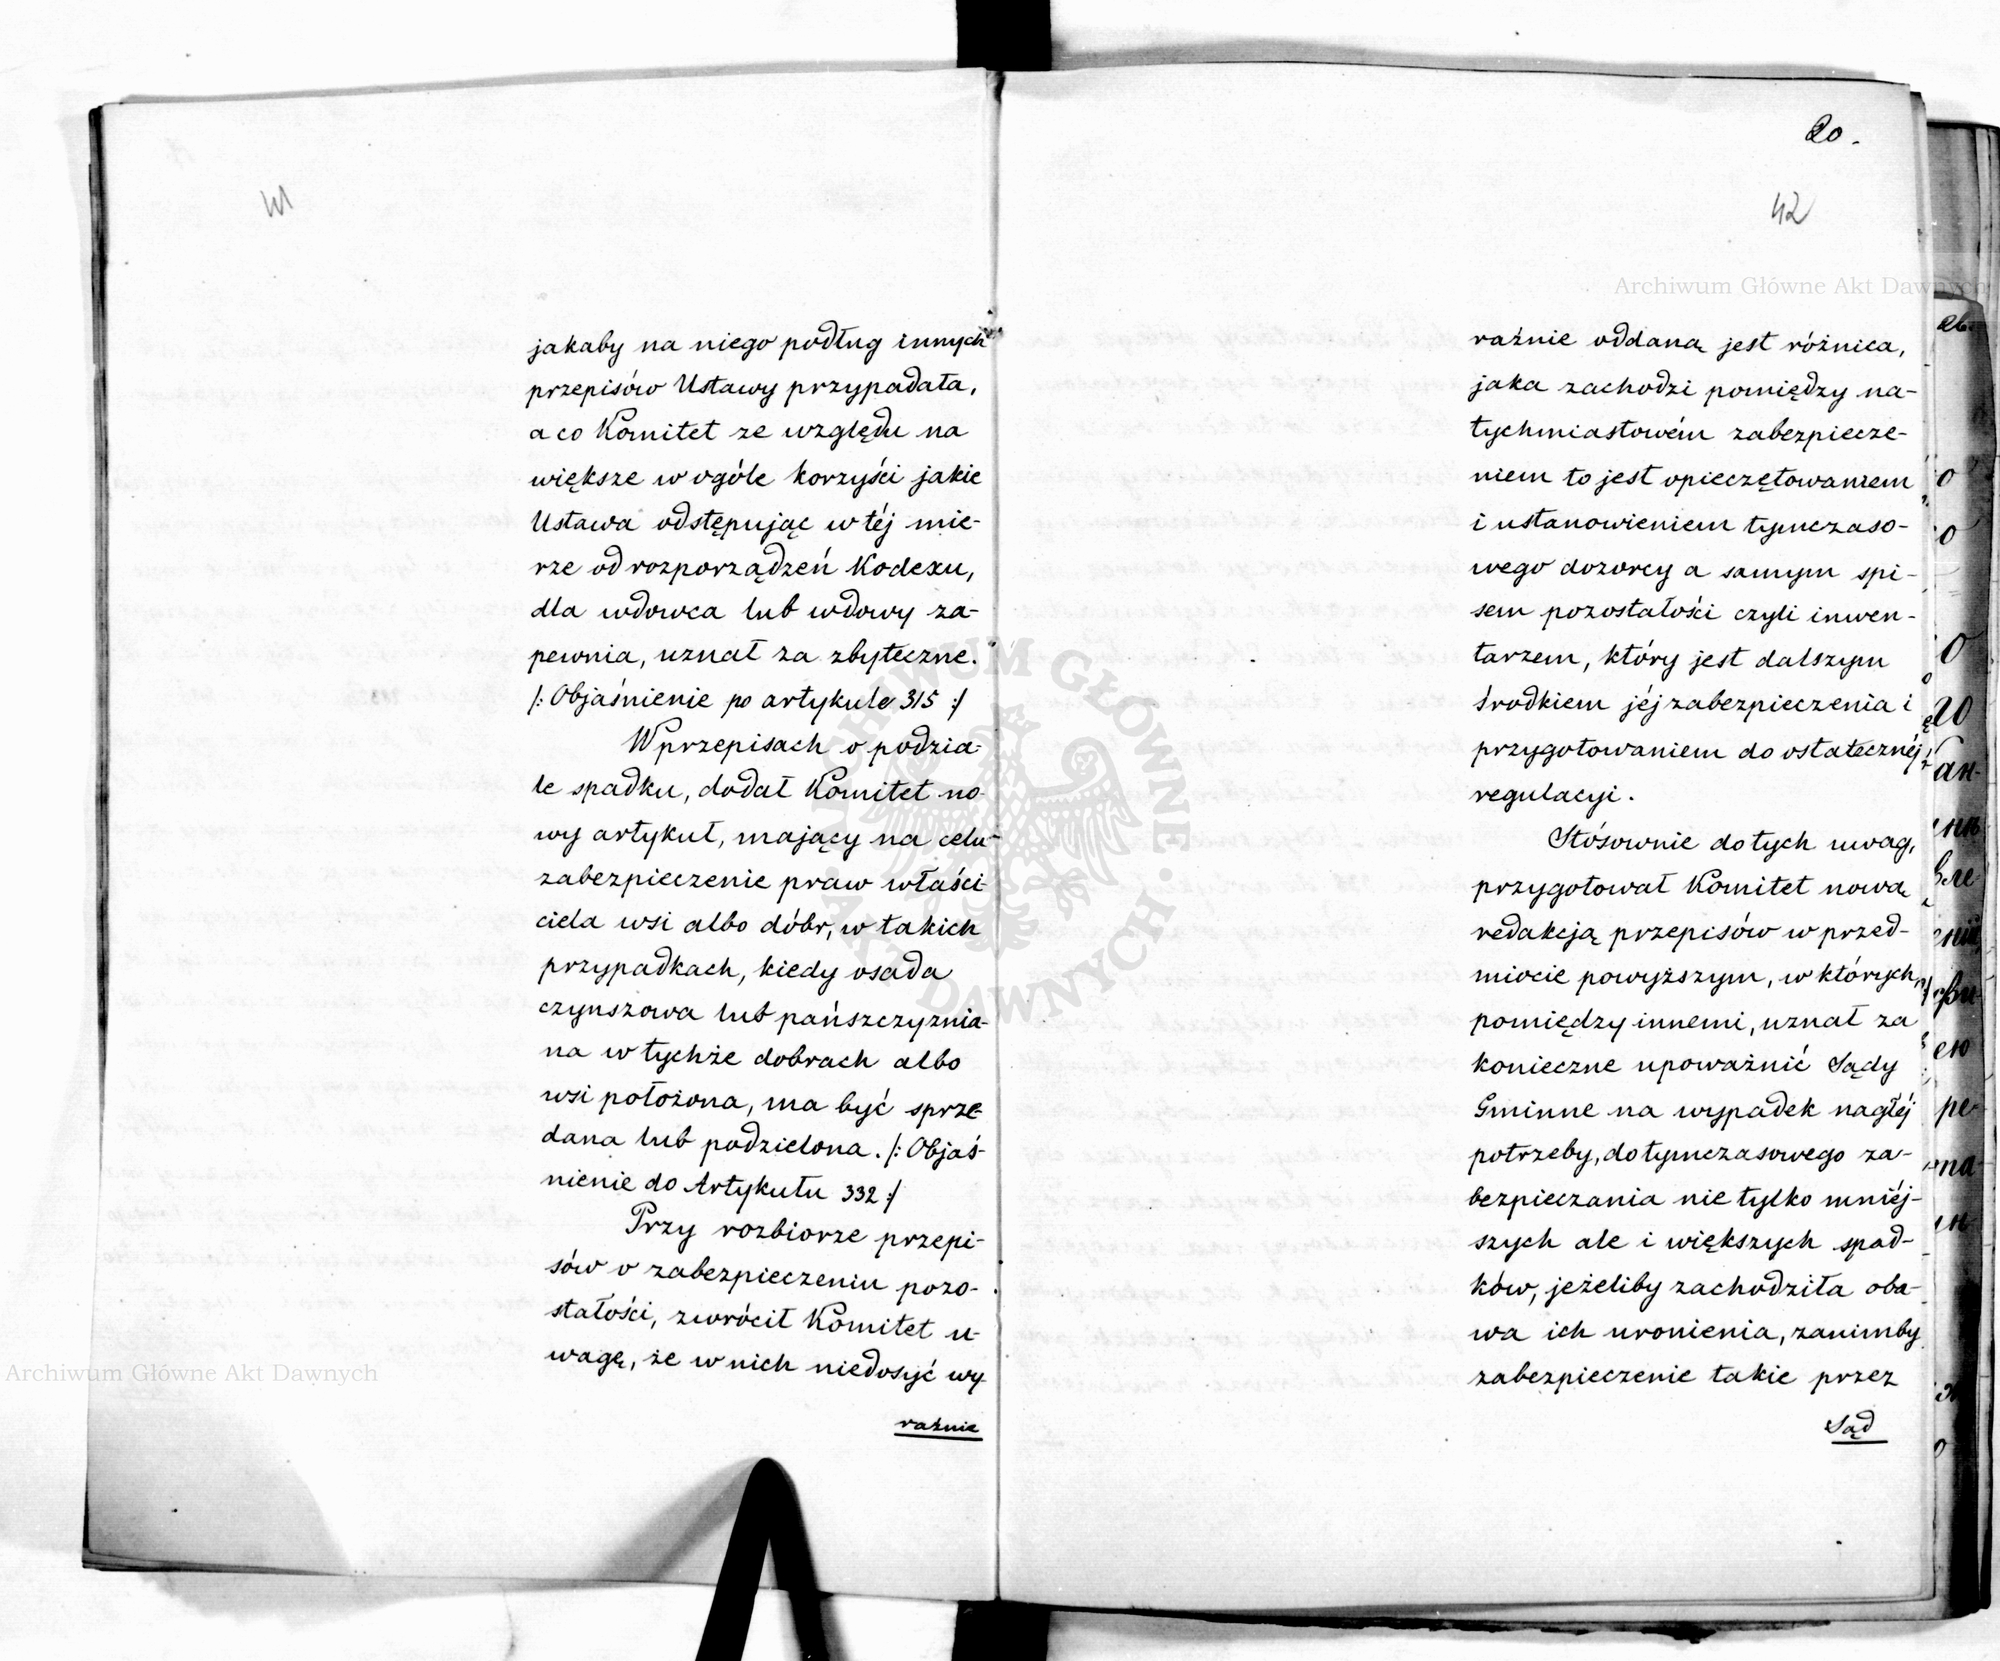 41
jakaby na niego podług innych
przepisów Ustawy przypadała,
a co Komitet ze względu na
większe w ogóle korzyści jakie
Ustawa odstępując w téj mie-
rze od rozporządzeń Kodexu,
dla wdowca lub wdowy za-
pewnia, uznał za zbyteczne.
/: Objaśnienie po artykule 315 :/
W przepisach o podzia-
le spadku, dodał Komitet no-
wy artykuł, mający na celu
zabezpieczenie praw właści-
ciela wsi albo dóbr, w takich
przypadkach, kiedy osada
czynszowa lub pańszczyznia-
na w tychże dobrach albo
wsi położona, ma być sprze-
dana lub podzielona. /: Objaś-
nienie do Artykułu 332 :/
Przy rozbiorze przepi-
sów o zabezpieczeniu pozo-
stałości, zwrócił Komitet u-
wagę, że w nich niedosyć wy-
raźnie
20.
42
raźnie oddaną jest różnica,
jaka zachodzi pomiędzy na-
tychmiastowém zabezpiecze-
niem to jest opieczętowaniem
i ustanowieniem tymczaso-
wego dozorcy a samym spi-
sem pozostałości czyli inwen-
tarzem, który jest dalszym
środkiem jéj zabezpieczenia i
przygotowaniem do ostatecznéj
regulacyi.
Stósownie do tych uwag,
przygotował Komitet nową
redakcją przepisów w przed-
miocie powyższym, w których,
pomiędzy innemi, uznał za
konieczne upoważnić Sądy
Gminne na wypadek nagłéj
potrzeby, do tymczasowego za-
bezpieczania nie tylko mniéj-
szych ale i większych spad-
ków, jeżeliby zachodziła oba-
wa ich uronienia, zanimby
zabezpieczenie takie przez
Sąd
Archiwum Główne Akt Dawnych
Archiwum Główne Akt Dawnych
ARCHIWUM GŁÓWNE · AKT DAWNYCH ·